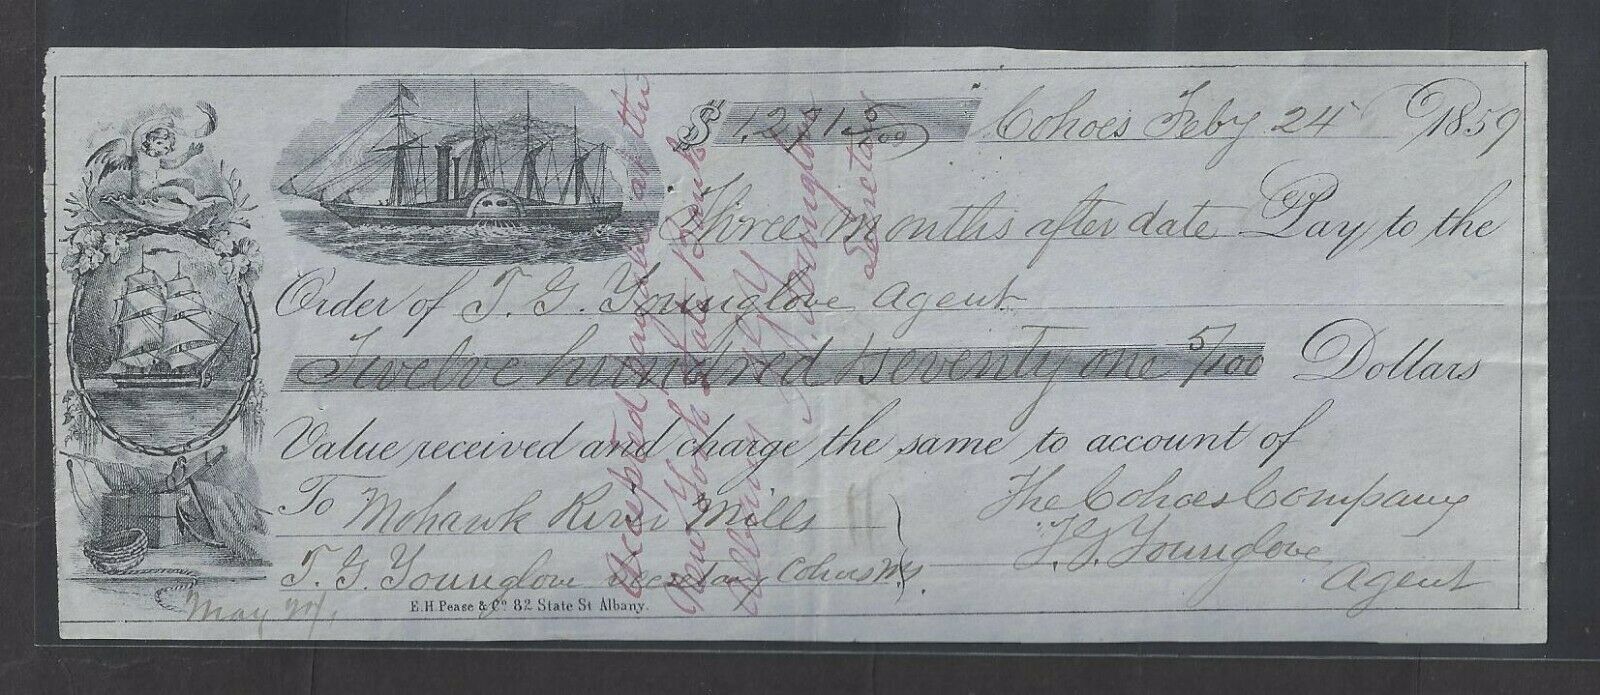 $ 1,271 5/100 Cohoes Feby 24 1859
Three months after date Pay to the
Order of T. G. Younglove Agent
Twelve hundred & seventy one 5/100 Dollars
Value received and charge the same to account of
To Mohawk River Mills
T. G. Younglove Secretary Cohoes NY.
The Cohoes Company
T. G. Younglove
Agent
May 27,
E.H. Pease & Co. 82 State St Albany.
Accepted payable at the
New York State Bank
Albany
T. G. Younglove
Secretary